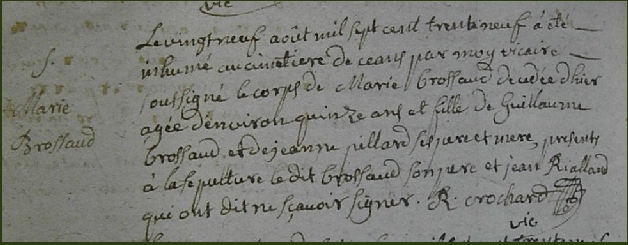 vic
Le vingt neuf août mil sept cent trente neuf à été
inhumé au cimetiere de ceans par moy vicaire
s.
soussigné le corps de Marie brossaud decedée d'hier
Marie
agée d'environ quinze ans et fille de Guillaume
Brossaud
brossaud et de jeanne pillard ses pere et mere, presents
à la sepulture le dit brossaud son pere et jean Rialland
qui ont dit ne sçavoir signer. R. crochard
vic